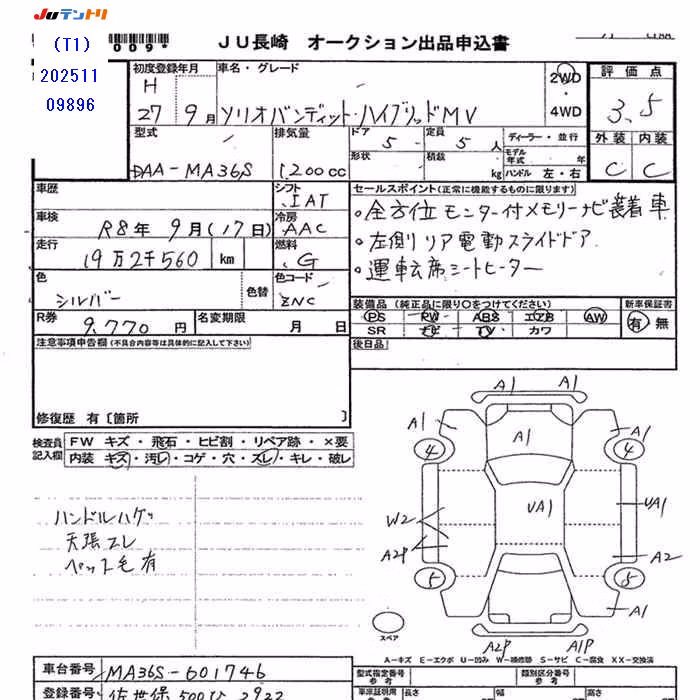 JUテントリ
(T1)
202511
09896
009*
JU長崎 オークション出品申込書
初度登録年月 車名・グレード 評価点
H
27年 9月 ソリオバンディット・ハイブリッドMV
2WD
・
4WD
3.5
型式 排気量 ドア 5 定員 5 人 ディーラー・並行 外装 内装
DAA-MA36S 1,200cc 形状 積載 kg モデル年式 年 C C
ハンドル 左・右
車歴 シフト セールスポイント(正常に機能するものに限ります)
IAT
車検 R8年 9月(17日) 冷房 AAC
・全方位モニター付メモリーナビ装着車
・左側リア電動スライドドア
・運転席シートヒーター
走行 19万2千560 km 燃料 G
色 シルバー 色替 色コード ZNC
装備品(純正品に限り○をつけてください) 新車保証書
PS PW ABS エアB AW
SR ナビ TV カワ
有・無
R券 9,770円 名変期限 月 日
後日品
注意事項申告欄(不具合内容等は具体的に記入して下さい)
修復歴 有〔箇所 〕
検査員記入欄
FW キズ・飛石・ヒビ割・リペア跡・×要
内装 キズ・汚レ・コゲ・穴・スレ・キレ・破レ
ハンドルハゲ
天張スレ
ペット毛有
A1 A1
A1 A1 A1
4 4
UA1 UA1
W2
A2P A2
5 5
A1
スペア
A2P A1P
A-キズ E-エクボ U-凹み W-補修跡 S-サビ C-腐食 XX-交換済
車台番号 MA36S-601746
型式指定番号 類別区分番号
参考 参考
登録番号 佐世保 500 ひ 2922
車庫証明用 長さ 幅 高さ
参考